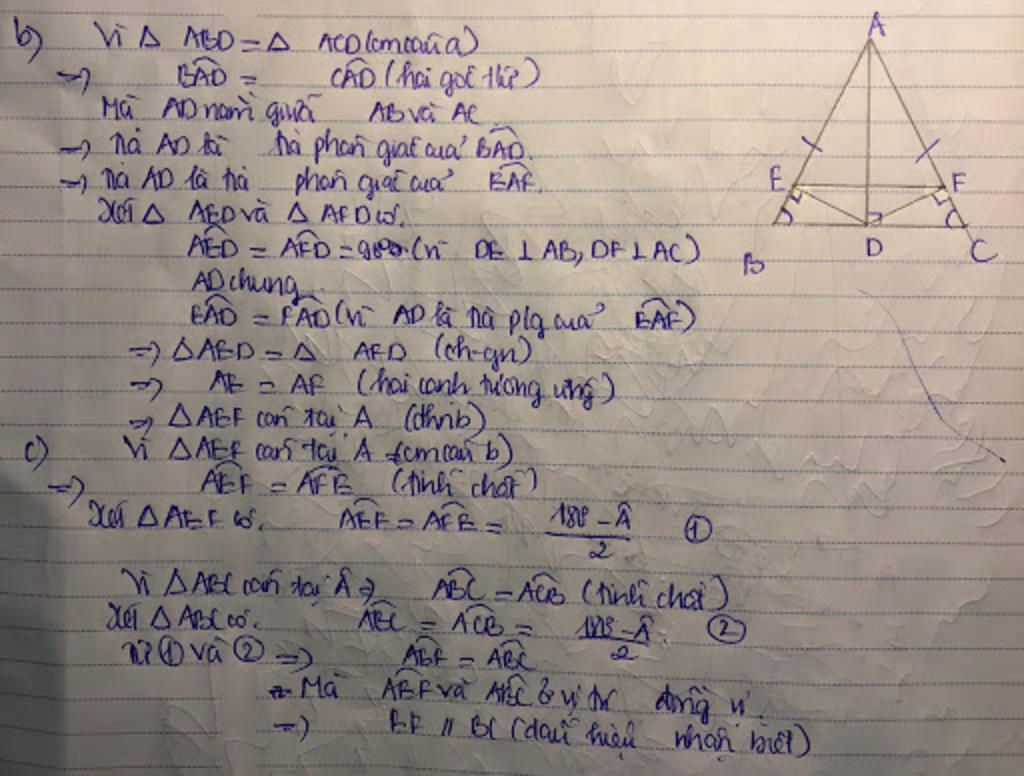 b) Vì Δ ABD = Δ ACD (cm câu a)
=> BAD = CAD (hai góc t/ứ)
Mà AD nằm giữa AB và AC
=> tia AD là tia phân giác của BAD.
=> tia AD là tia phân giác của EAF.
Xét Δ AED và Δ AFD có.
AED = AFD = 90° (vì DE ⊥ AB, DF ⊥ AC)
AD chung
EAD = FAD (vì AD là tia p/g của EAF)
=> Δ AED = Δ AFD (ch-gn)
=> AE = AF (hai cạnh tương ứng)
=> Δ AEF cân tại A (đhnb)
c) Vì Δ AEF cân tại A (cm câu b)
=> AEF = AFE (tính chất)
Xét Δ AEF có. AEF = AFE = 180° - Â / 2 ①
Vì Δ ABC cân tại Â => ABC = ACB (tính chất)
Xét Δ ABC có. ABC = ACB = 180° - Â / 2 ②
Từ ① và ② => AEF = ABC
Mà AEF và ABC ở vị trí đồng vị
=> EF // BC (dấu hiệu nhận biết)
A
E
F
B
D
C